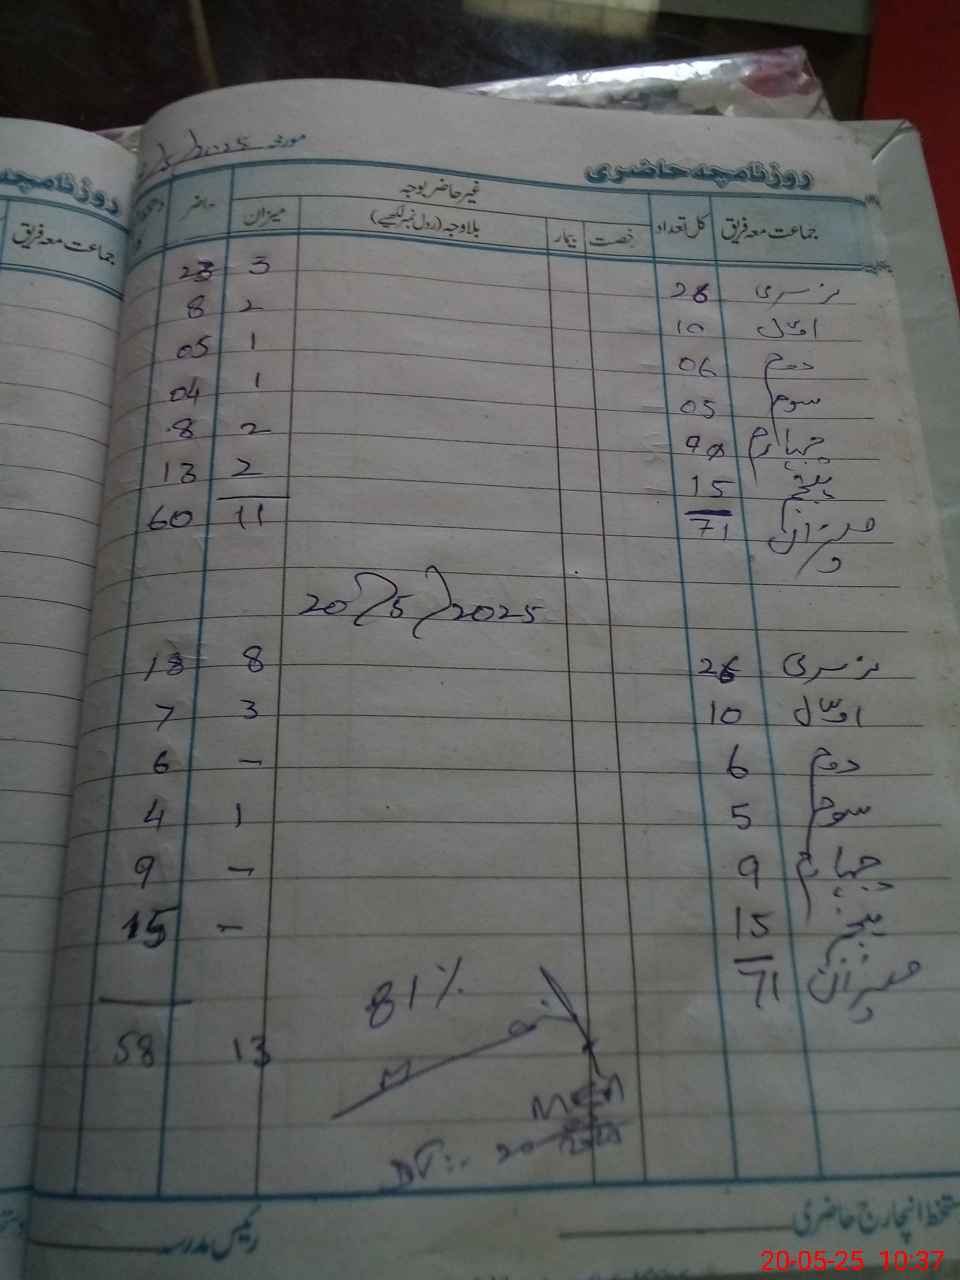 روزنامچہ حاضری
مورخہ /5/2025
روزنامچہ
جماعت معہ فریق کل تعداد رخصت بیمار بلاوجہ (رول نمبر لکھیے) میزان حاضر
غیر حاضر بوجہ
جماعت معہ فریق
نرسری 26 3 23
اول 10 2 8
دوم 06 1 05
سوم 05 1 04
چہارم 2 8
پنجم 15 2 13
میزان 71 11 60
20/5/2025
نرسری 26 8 18
اول 10 3 7
دوم 6 - 6
سوم 5 1 4
چہارم 9 - 9
پنجم 15 - 15
میزان 71
81%
13 58
MEA
DT:- 20
دستخط انچارج حاضری
رئیس مدرسہ
20-05-25 10:37